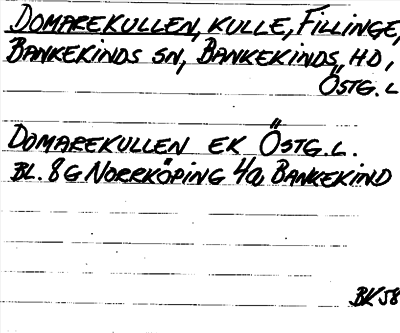 DOMAREKULLEN, KULLE, FILLINGE,
BANKEKINDS SN, BANKEKINDS HD,
ÖSTG. L
DOMAREKULLEN EK ÖSTG. L.
BL. 8G NORRKÖPING 4a BANKEKIND
BK58